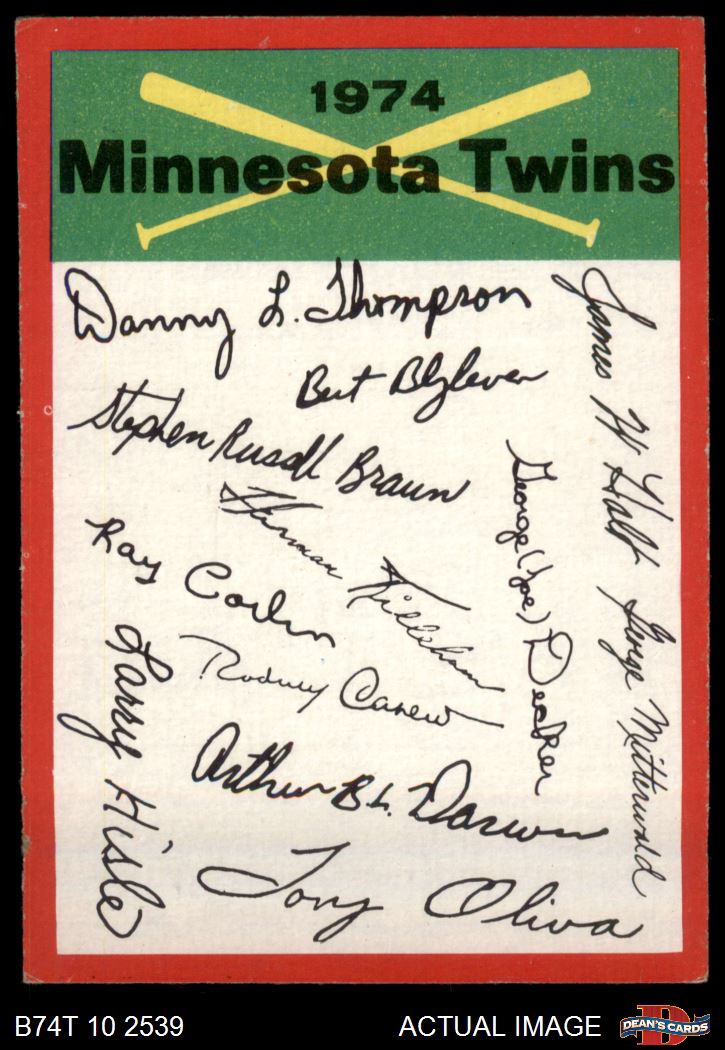 1974
Minnesota Twins
Danny L. Thompson
James W Holt
Bert Blyleven
Stephen Russell Braun
George (Joe) Decker
Harmon Killebrew
Ray Corbin
George Mitterwald
Larry Hisle
Rodney Carew
Arthur B.L. Darwin
Tony Oliva
B74T 10 2539
ACTUAL IMAGE
D
DEAN'S CARDS